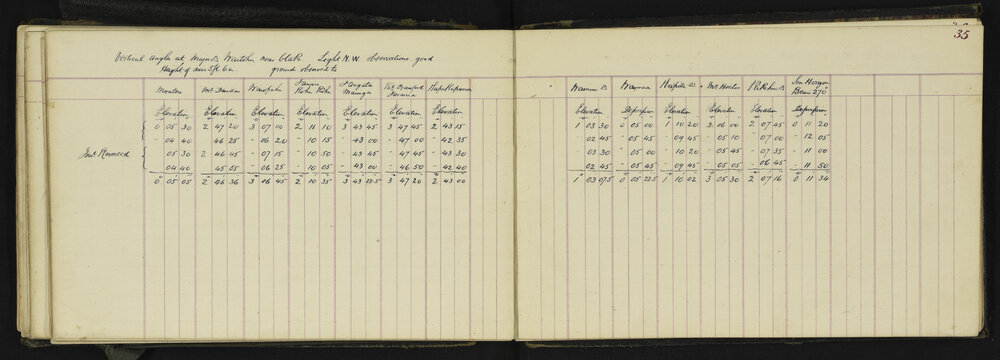 35
Vertical angles at Major △ Waitohi near Clark Light N.W. observations good
Height of axis 5ft 6in ground observed to
Mt Dundas
Elevation Elevation Elevation Elevation Elevation Elevation Elevation
0 05 30 2 47 20 3 07 00 2 11 10 3 43 45 3 47 45 2 43 15
04 40 46 25 - 06 20 - 10 15 - 43 00 - 47 00 - 42 35
Inst Reversed 05 30 2 46 45 - 07 15 - 10 50 - 43 45 - 47 45 - 43 30
04 40 45 55 - 06 25 - 10 05 - 43 00 - 46 50 - 42 40
0 05 05 2 46 36 3 06 45 2 10 35 3 43 22.5 3 47 20 2 43 00
Sea Horizon
Bears 270°
Elevation Depression Elevation Elevation Elevation Depression
1 03 30 0 05 00 1 10 20 3 06 00 2 07 45 0 11 20
02 45 - 05 45 - 09 45 - 05 10 - 07 00 - 12 05
03 30 - 05 00 - 10 20 - 05 45 - 07 35 - 11 00
02 45 - 05 45 - 09 45 - 05 05 - 06 45 - 11 50
1 03 07.5 0 05 22.5 1 10 02 3 05 30 2 07 16 0 11 34